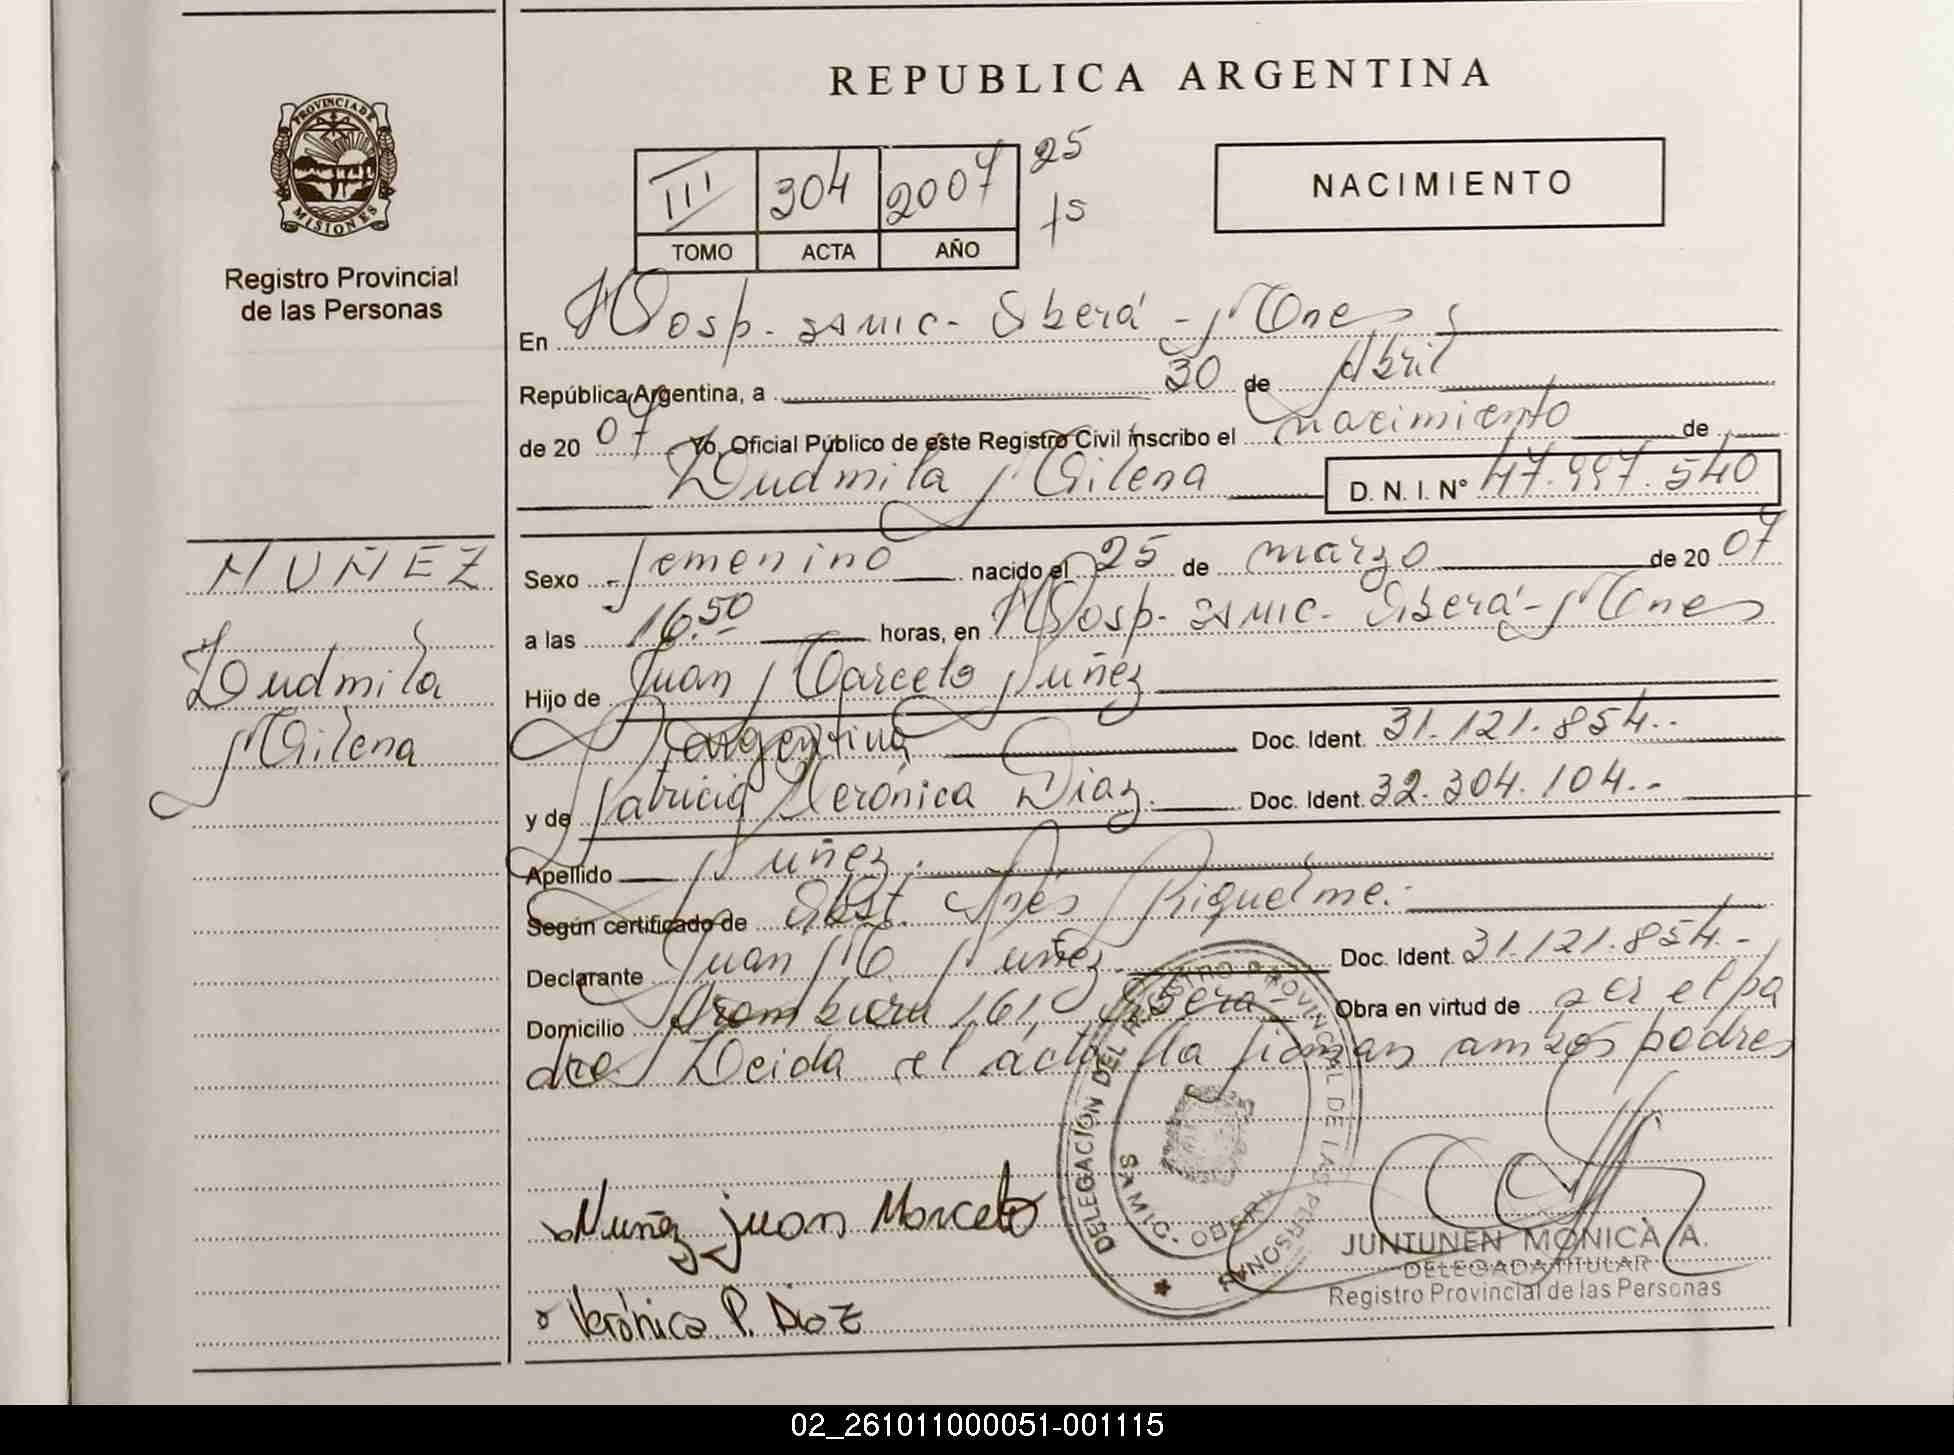 REPUBLICA ARGENTINA
PROVINCIA DE
MISIONES
Registro Provincial
de las Personas
III 304 2007 25
15
TOMO ACTA AÑO
NACIMIENTO
En Hosp. SAMIC - Oberá - Mnes
República Argentina, a 30 de Abril
de 20 07 Yo, Oficial Público de este Registro Civil inscribo el nacimiento de
Ludmila Milena D. N. I. N° 47.997.540
NUÑEZ
Ludmila
Milena
Sexo femenino nacido el 25 de marzo de 20 07
a las 16.50 horas, en Hosp. SAMIC - Oberá - Mnes
Hijo de Juan Marcelo Nuñez
argentina Doc. Ident. 31.121.854.-
y de Patricia Verónica Diaz. Doc. Ident. 32.304.104.-
Apellido Nuñez.
Según certificado de Obst. Inés Riquelme.
Declarante Juan M Nuñez Doc. Ident. 31.121.854.-
Domicilio 161 Oberá Obra en virtud de ser el pa
dre Leida el acta la firman ambos padres
DELEGACIÓN DEL REGISTRO PROVINCIAL DE LAS PERSONAS
SAMIC - OBERA
Nuñez Juan Marcelo
Verónica P. Diaz
JUNTUNEN MONICA A.
DELEGADA TITULAR
Registro Provincial de las Personas
02_261011000051-001115